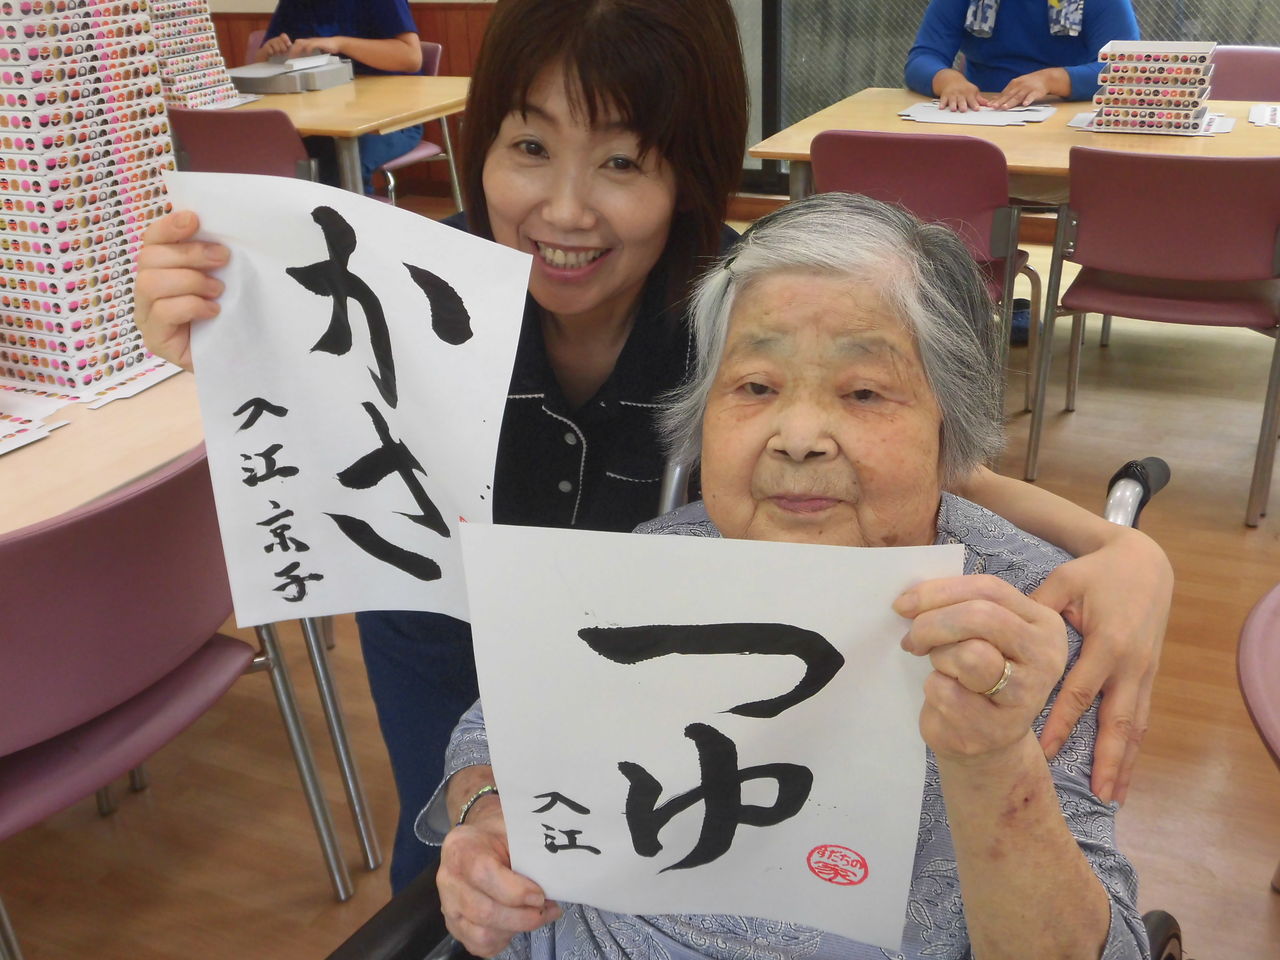 かさ
入江京子
つゆ
入江
すだちの
家